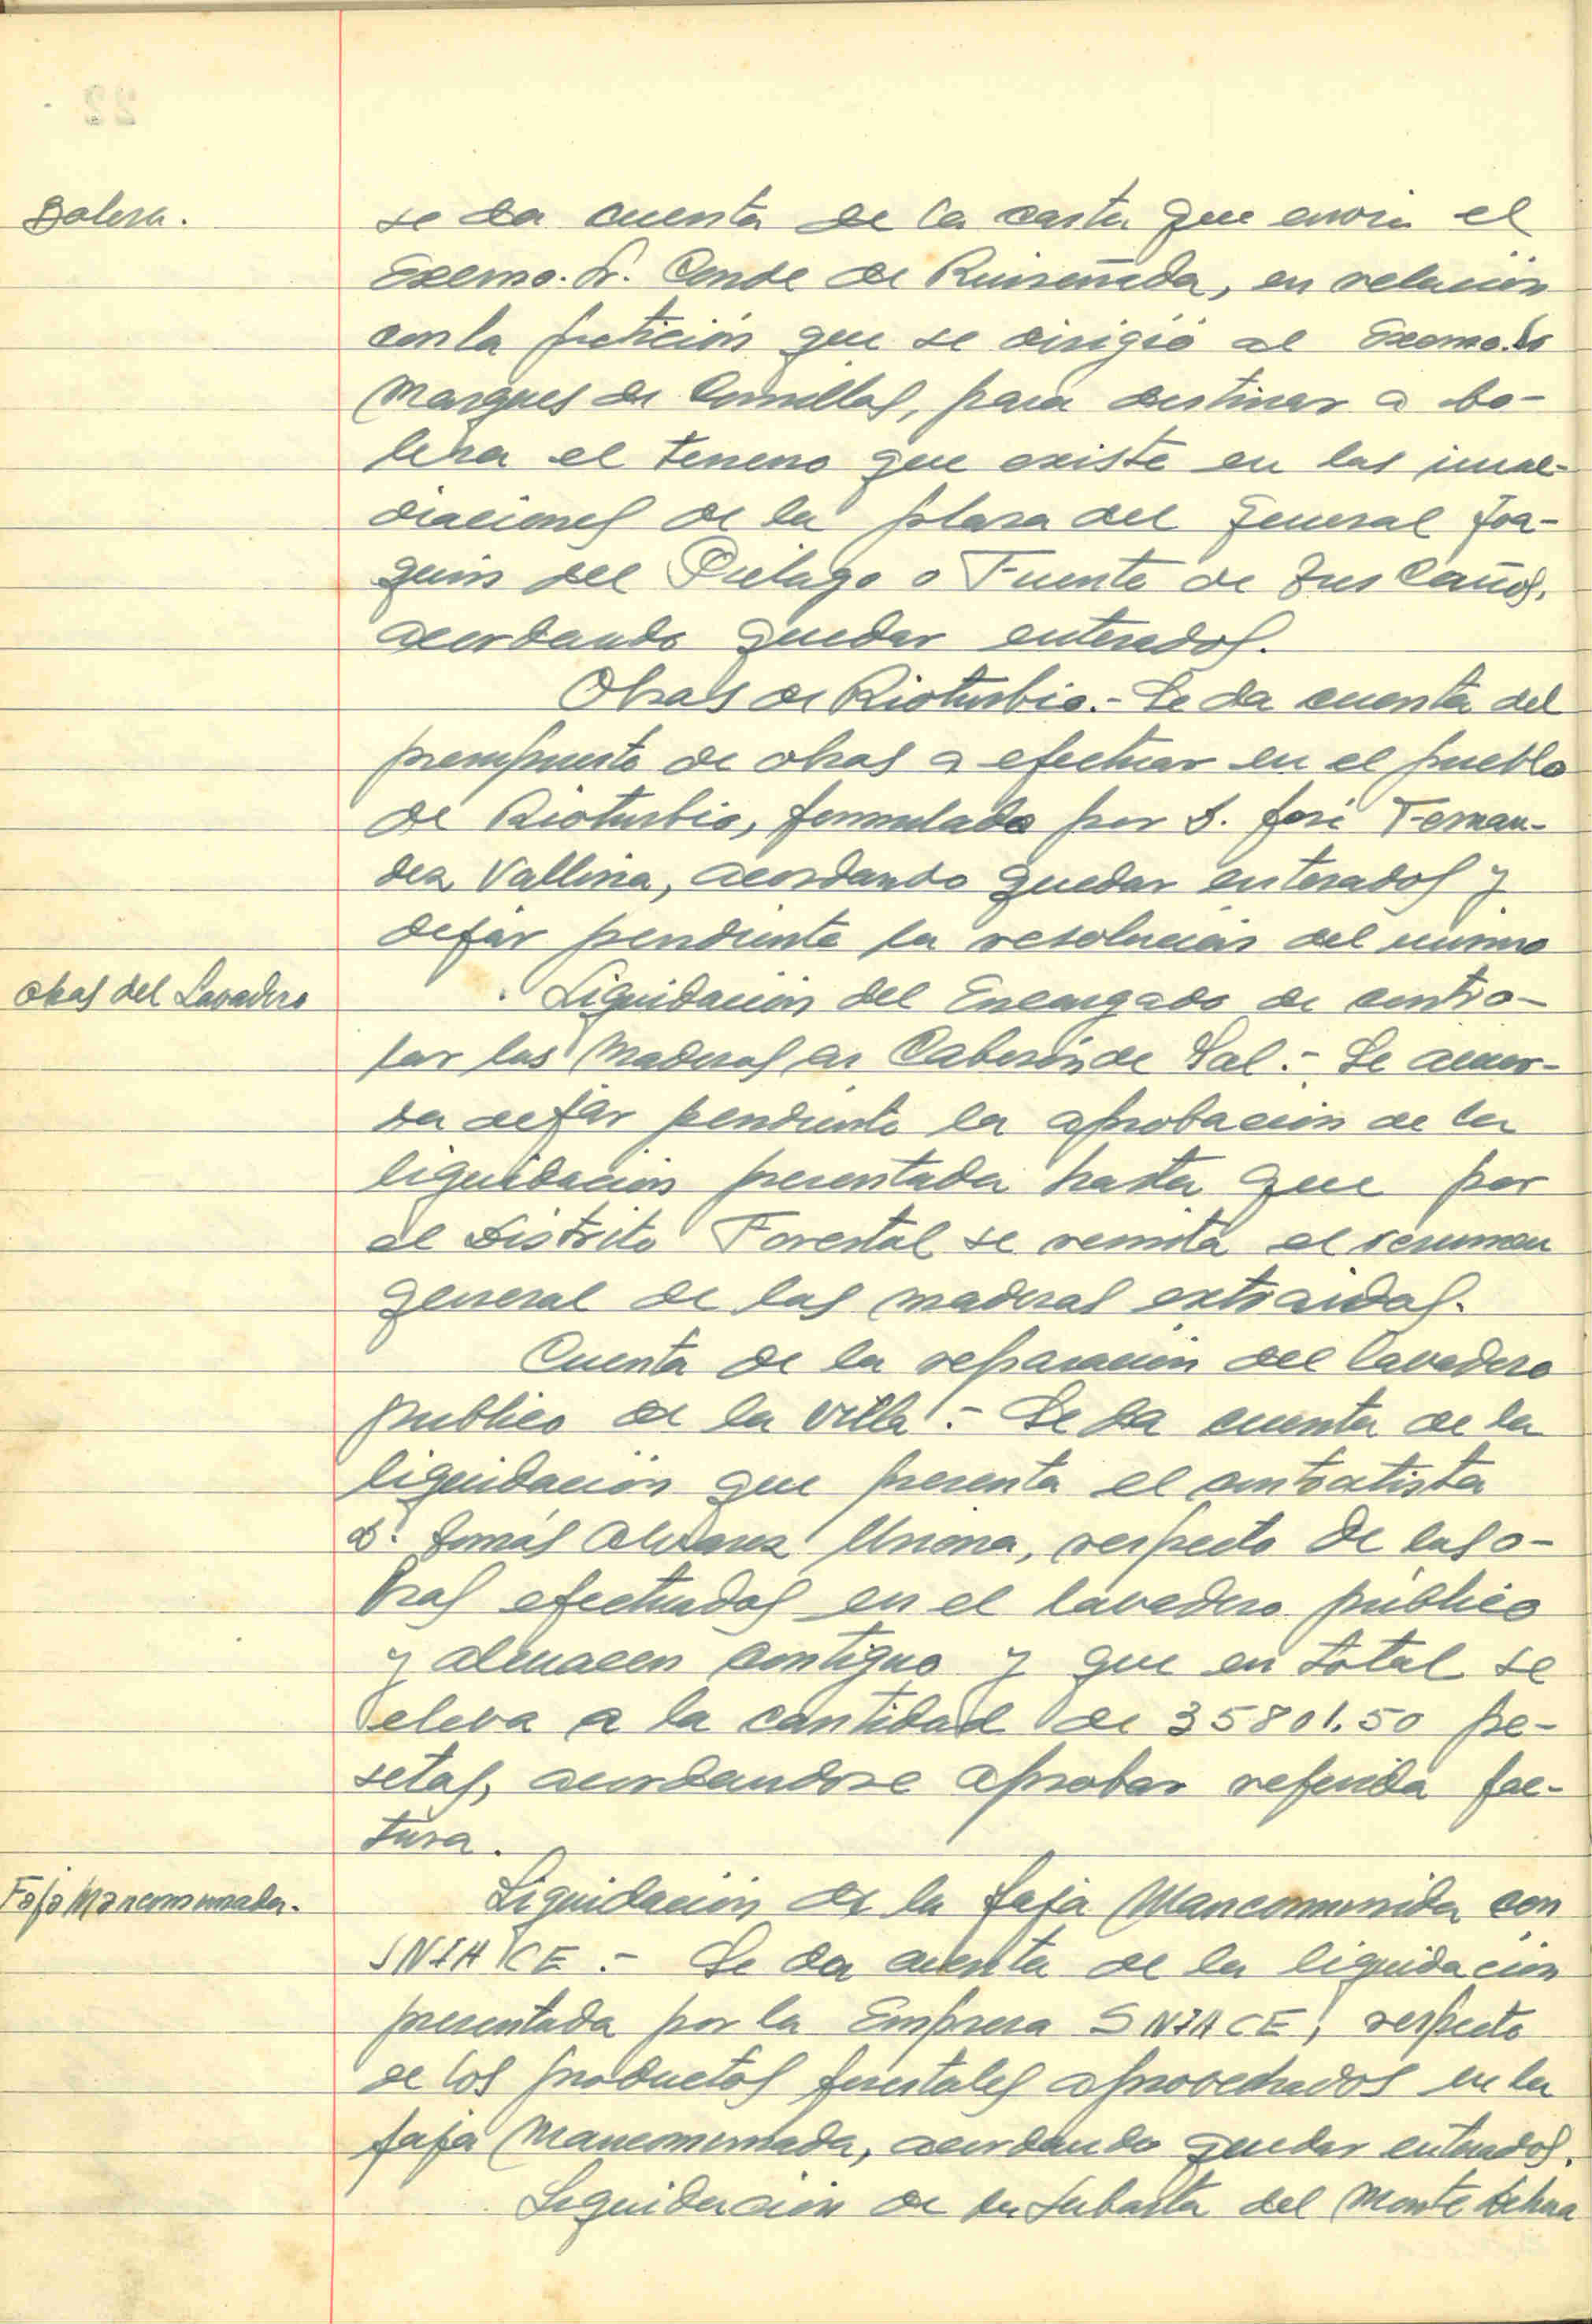 Bolera.
se da cuenta de la carta que envia el
Excmo. Sr. Conde de Ruiseñada, en relación
con la petición que se dirigió al Excmo. Sr
Marques de Comillas, para destinar a bo-
lera el terreno que existe en las inme-
diaciones de la plaza del General Joa-
quin del Pielago o Fuente de Tres Caños,
acordando quedar enterados.
Obras de Rioturbio.- Se da cuenta del
presupuesto de obras a efectuar en el pueblo
de Rioturbio, formulado por D. José Fernan-
dez Vallina, acordando quedar enterados y
dejar pendiente la resolución del mismo
Obras del Lavadero
Liquidación del Encargado de contro-
lar las Maderas en Cabezón de Sal.- Se acuer-
da dejar pendiente la aprobación de la
liquidación presentada hasta que por
el Distrito Forestal se remita el resumen
general de las maderas extraidas.
Cuenta de la reparación del lavadero
publico de la villa.- Se da cuenta de la
liquidación que presenta el contratista
D. Tomás Alvarez, respecto de las o-
bras efectuadas en el lavadero público
y almacen contiguo y que en total se
eleva a la cantidad de 35801.50 pe-
setas, acordandose aprobar referida fac-
tura.
Faja Mancomunada.
Liquidación de la faja Mancomunida con
SNIACE.- Se da cuenta de la liquidación
presentada por la Empresa SNIACE, respecto
de los productos forestales aprovechados en la
faja Mancomunada, acordando quedar enterados.
Liquidación de la Subasta del Monte